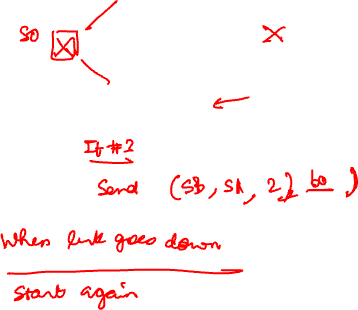 SO
If #2
Send (SB, SA, 2, 60)
When link goes down
Start again